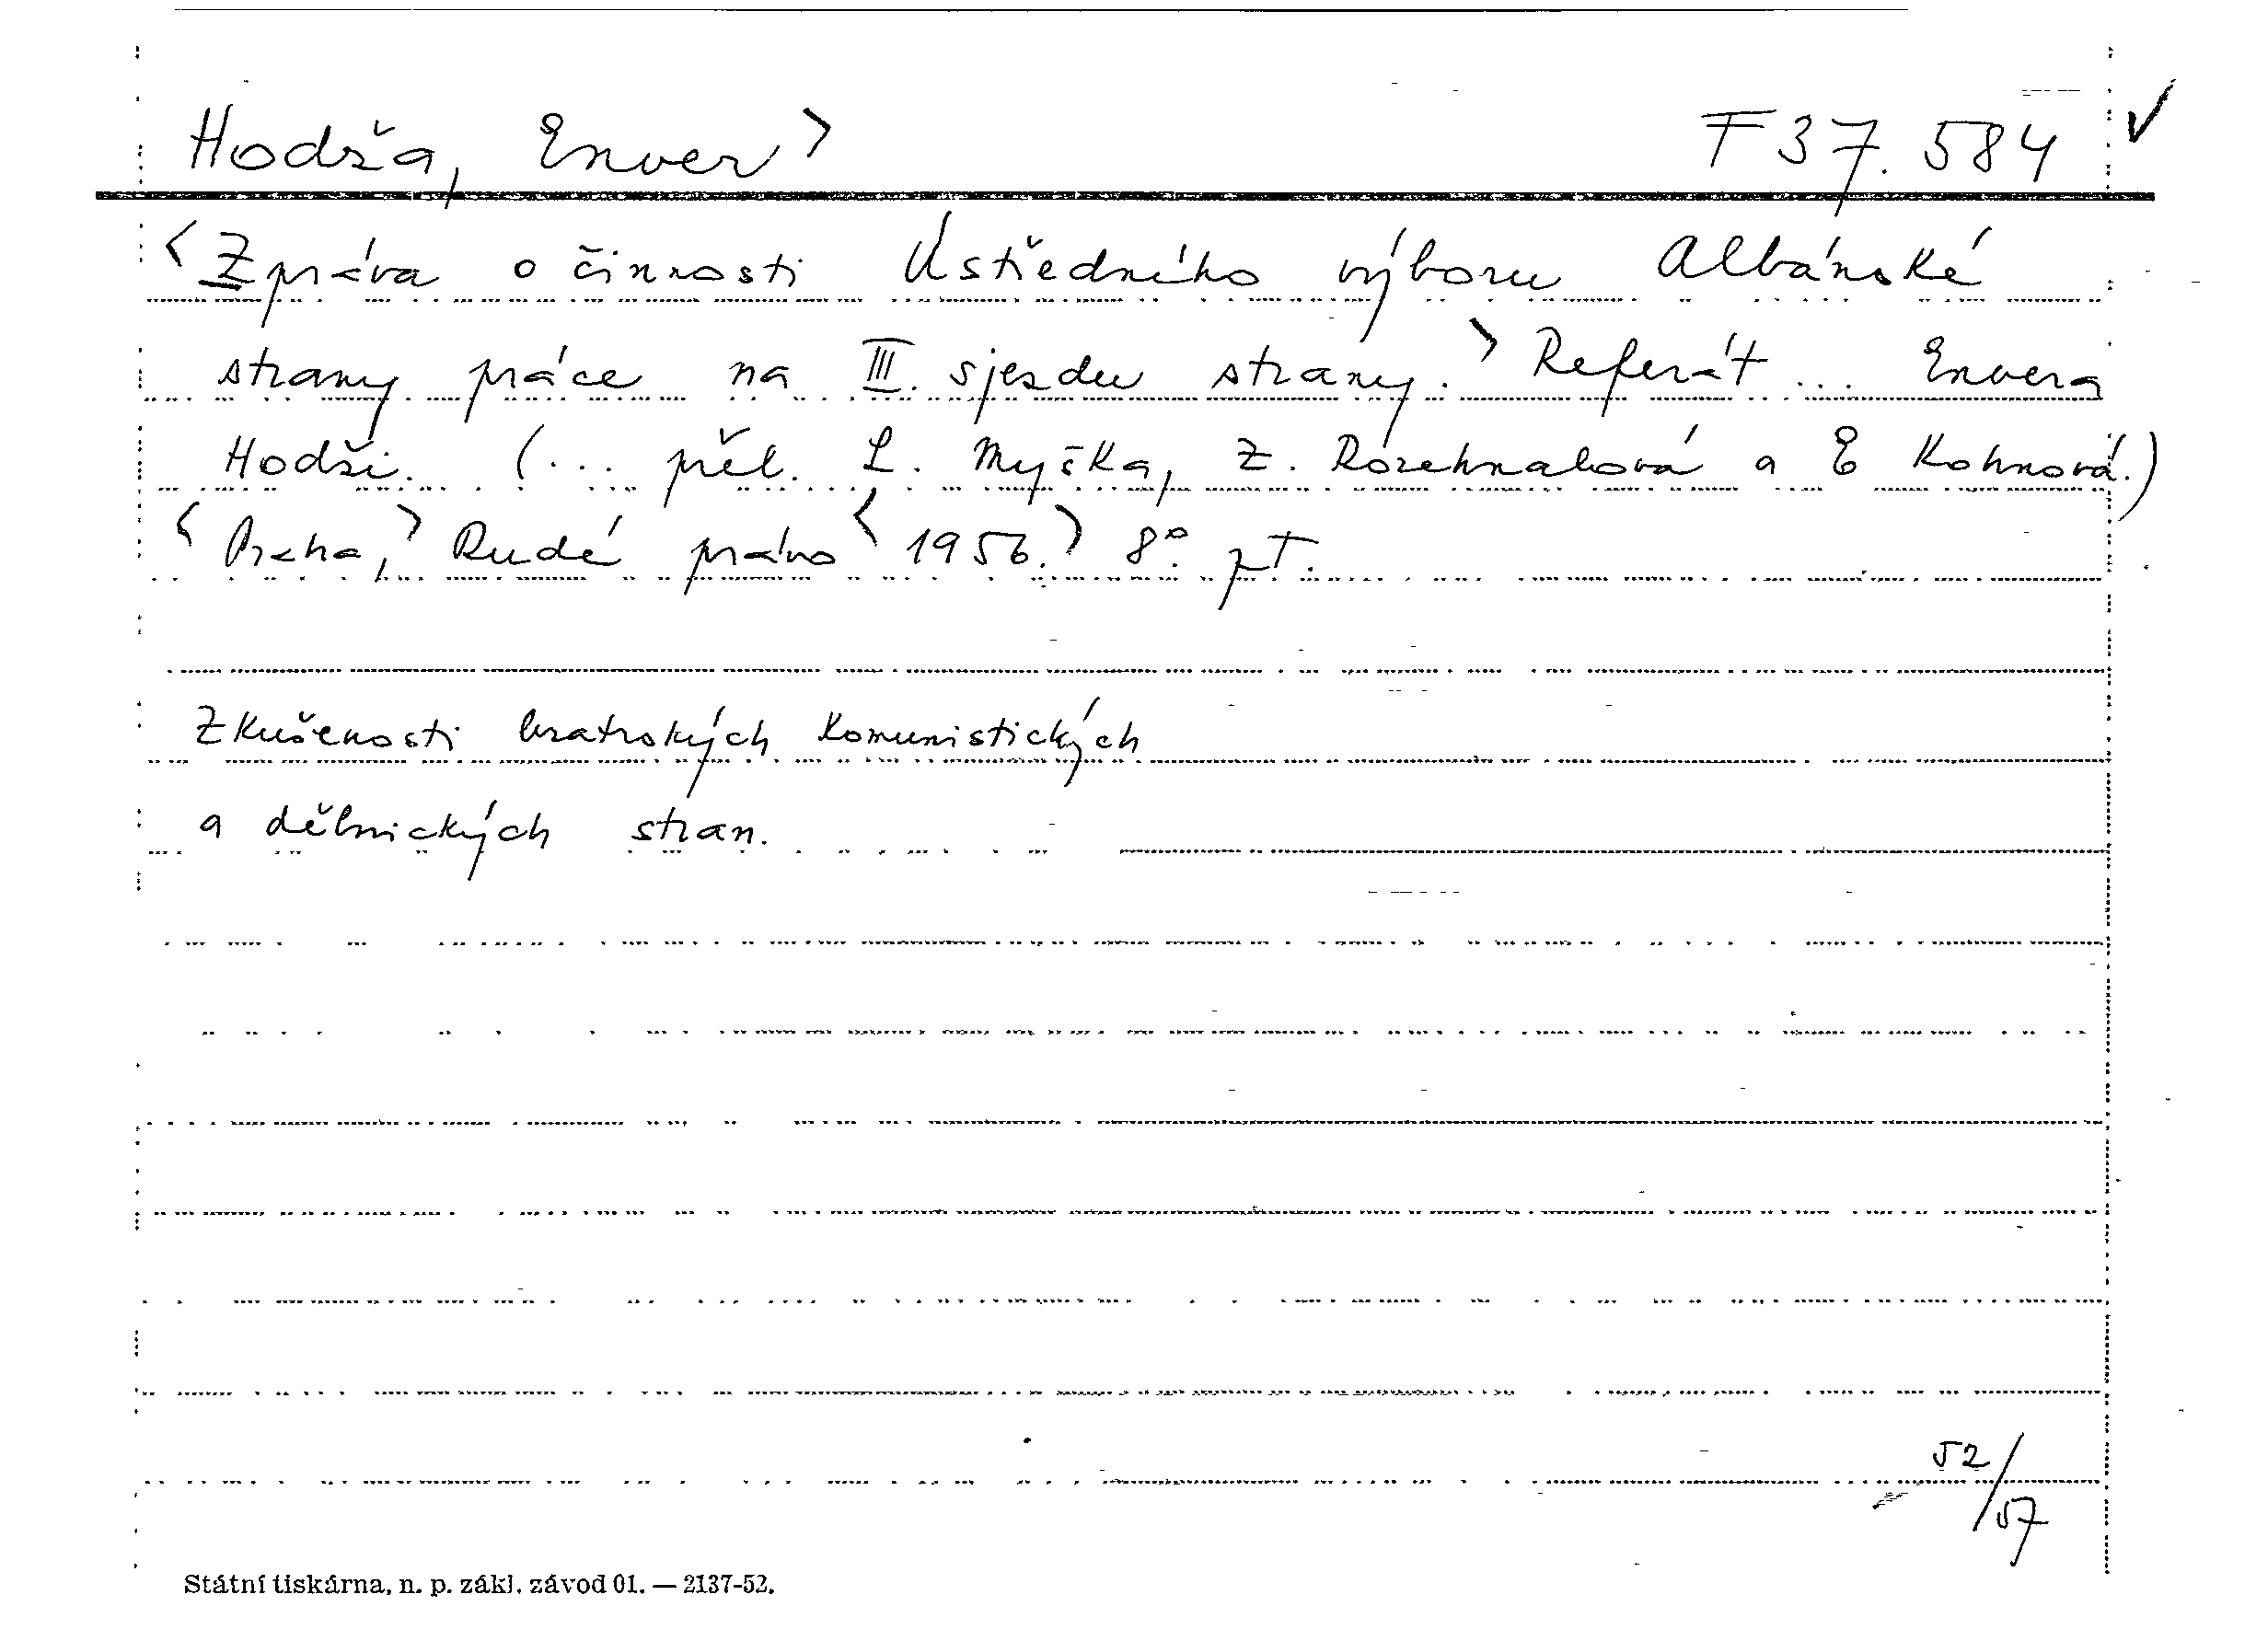 Hodža, Enver> F 37.584 ✓
<Zpráva o činnosti Ústředního výboru Albánské
strany práce na III. sjezdu strany.> Referát ... Envera
Hodži. (... přel. L. Myška, Z. Rozehnalová a E Kohnová.)
<Praha,> Rudé právo <1956.> 8°. pT.
Zkušenosti bratrských komunistických
a dělnických stran.
52/57
Státní tiskárna, n. p. zákl. závod 01. — 2137-52.